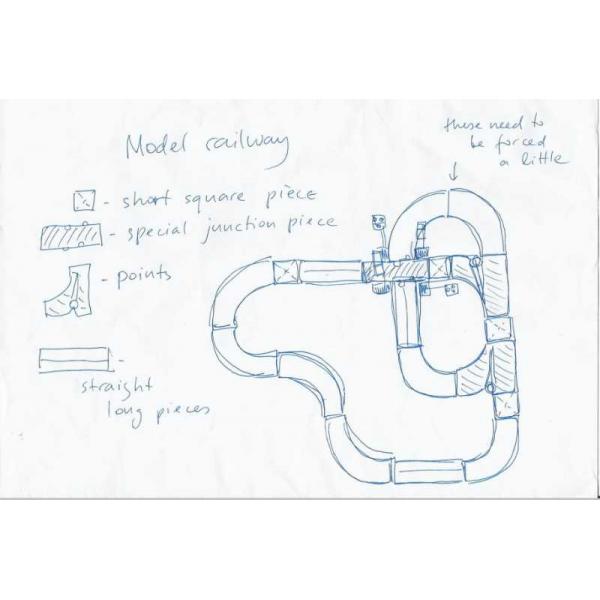 Model railway
these need to
be forced
a little
- short square pièce
- special junction piece
- points
-
straight
long pieces